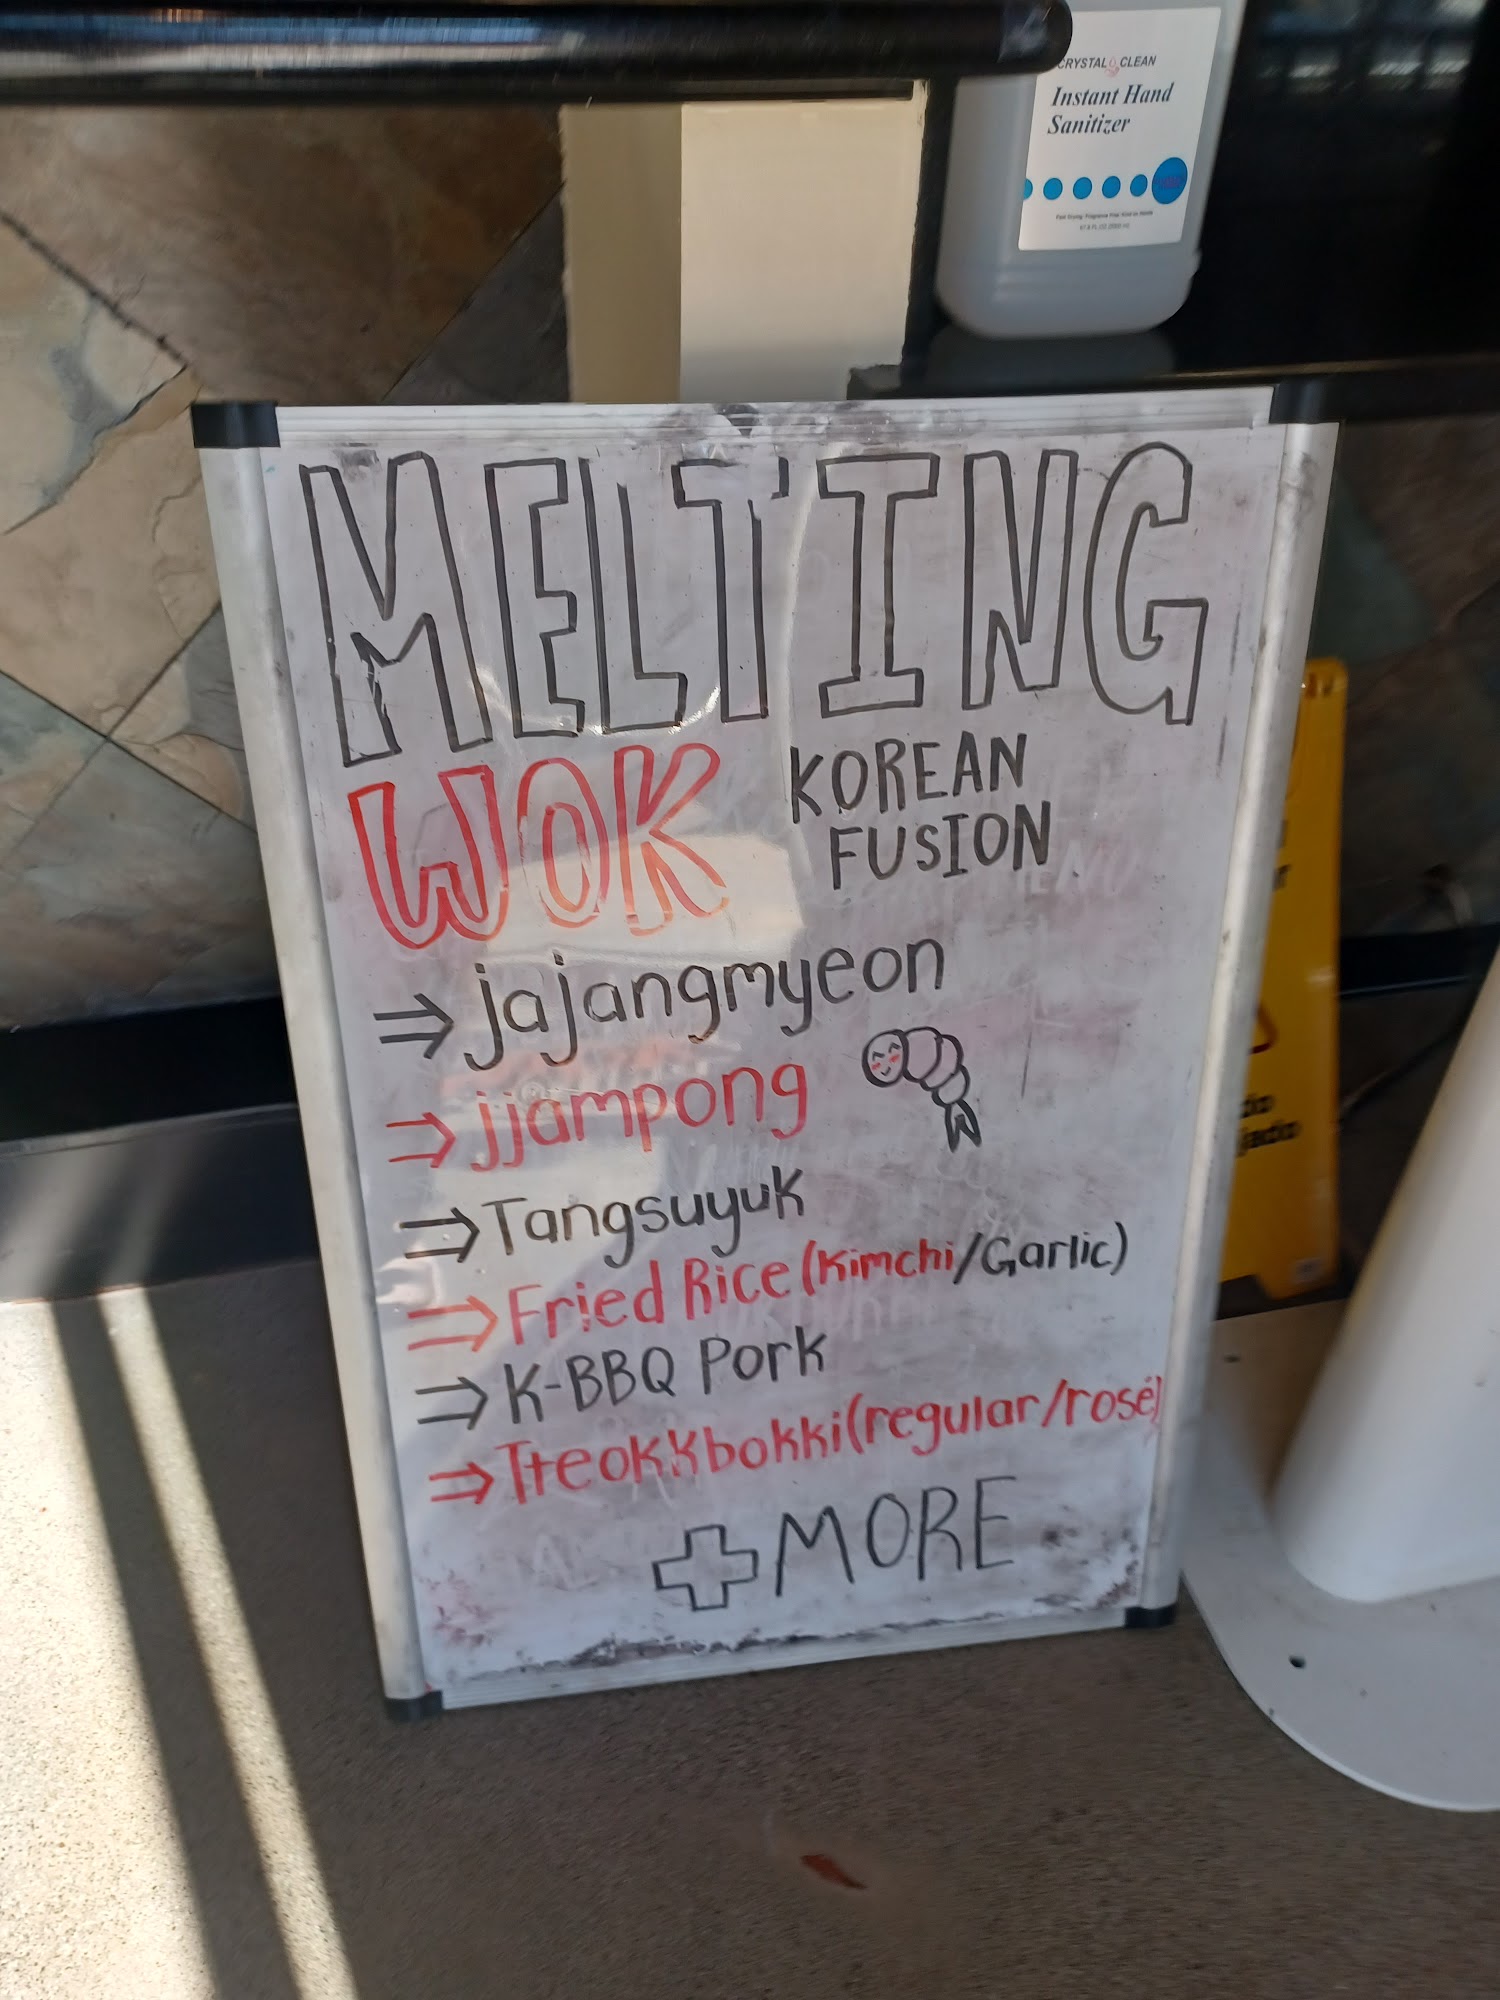 CRYSTAL CLEAN
Instant Hand
Sanitizer
MELTING
WOK
KOREAN
FUSION
⇒ jajangmyeon
⇒ jjampong
⇒ Tangsuyuk
⇒ Fried Rice (Kimchi/Garlic)
⇒ K-BBQ Pork
⇒ Tteokkbokki (regular/rosé)
+ MORE